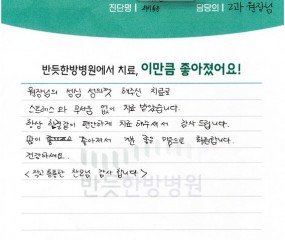 진단명 담당의 2과 원장님
반듯한방병원에서 치료, 이만큼 좋아졌어요!
원장님의 성심 성의껏 해주신 치료로
스트레스와 무서움 없이 치료 받았습니다.
항상 한결같이 편안하게 치료해주셔서 감사드립니다.
몸이 좋아져서 기분 좋은 맘으로 퇴원합니다.
건강하세요.
감사합니다>
반듯한방병원